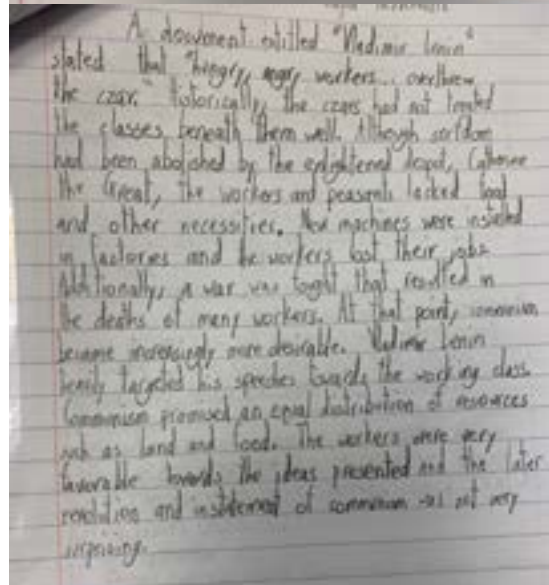 A document entitled "Vladimir Lenin"
stated that "hungry, angry workers... overthrew
the czar." Historically, the czars had not treated
the classes beneath them well. Although serfdom
had been abolished by the enlightened despot, Catherine
the Great, the workers and peasants lacked food
and other necessities. New machines were installed
in factories and the workers lost their jobs.
Additionally, a war was fought that resulted in
the deaths of many workers. At that point, communism
became increasingly more desirable. Vladimir Lenin
heavily targeted his speeches towards the working class.
Communism promised an equal distribution of resources
such as land and food. The workers were very
favorable towards the ideas presented and the later
revolution and instatement of communism was not very
surprising.